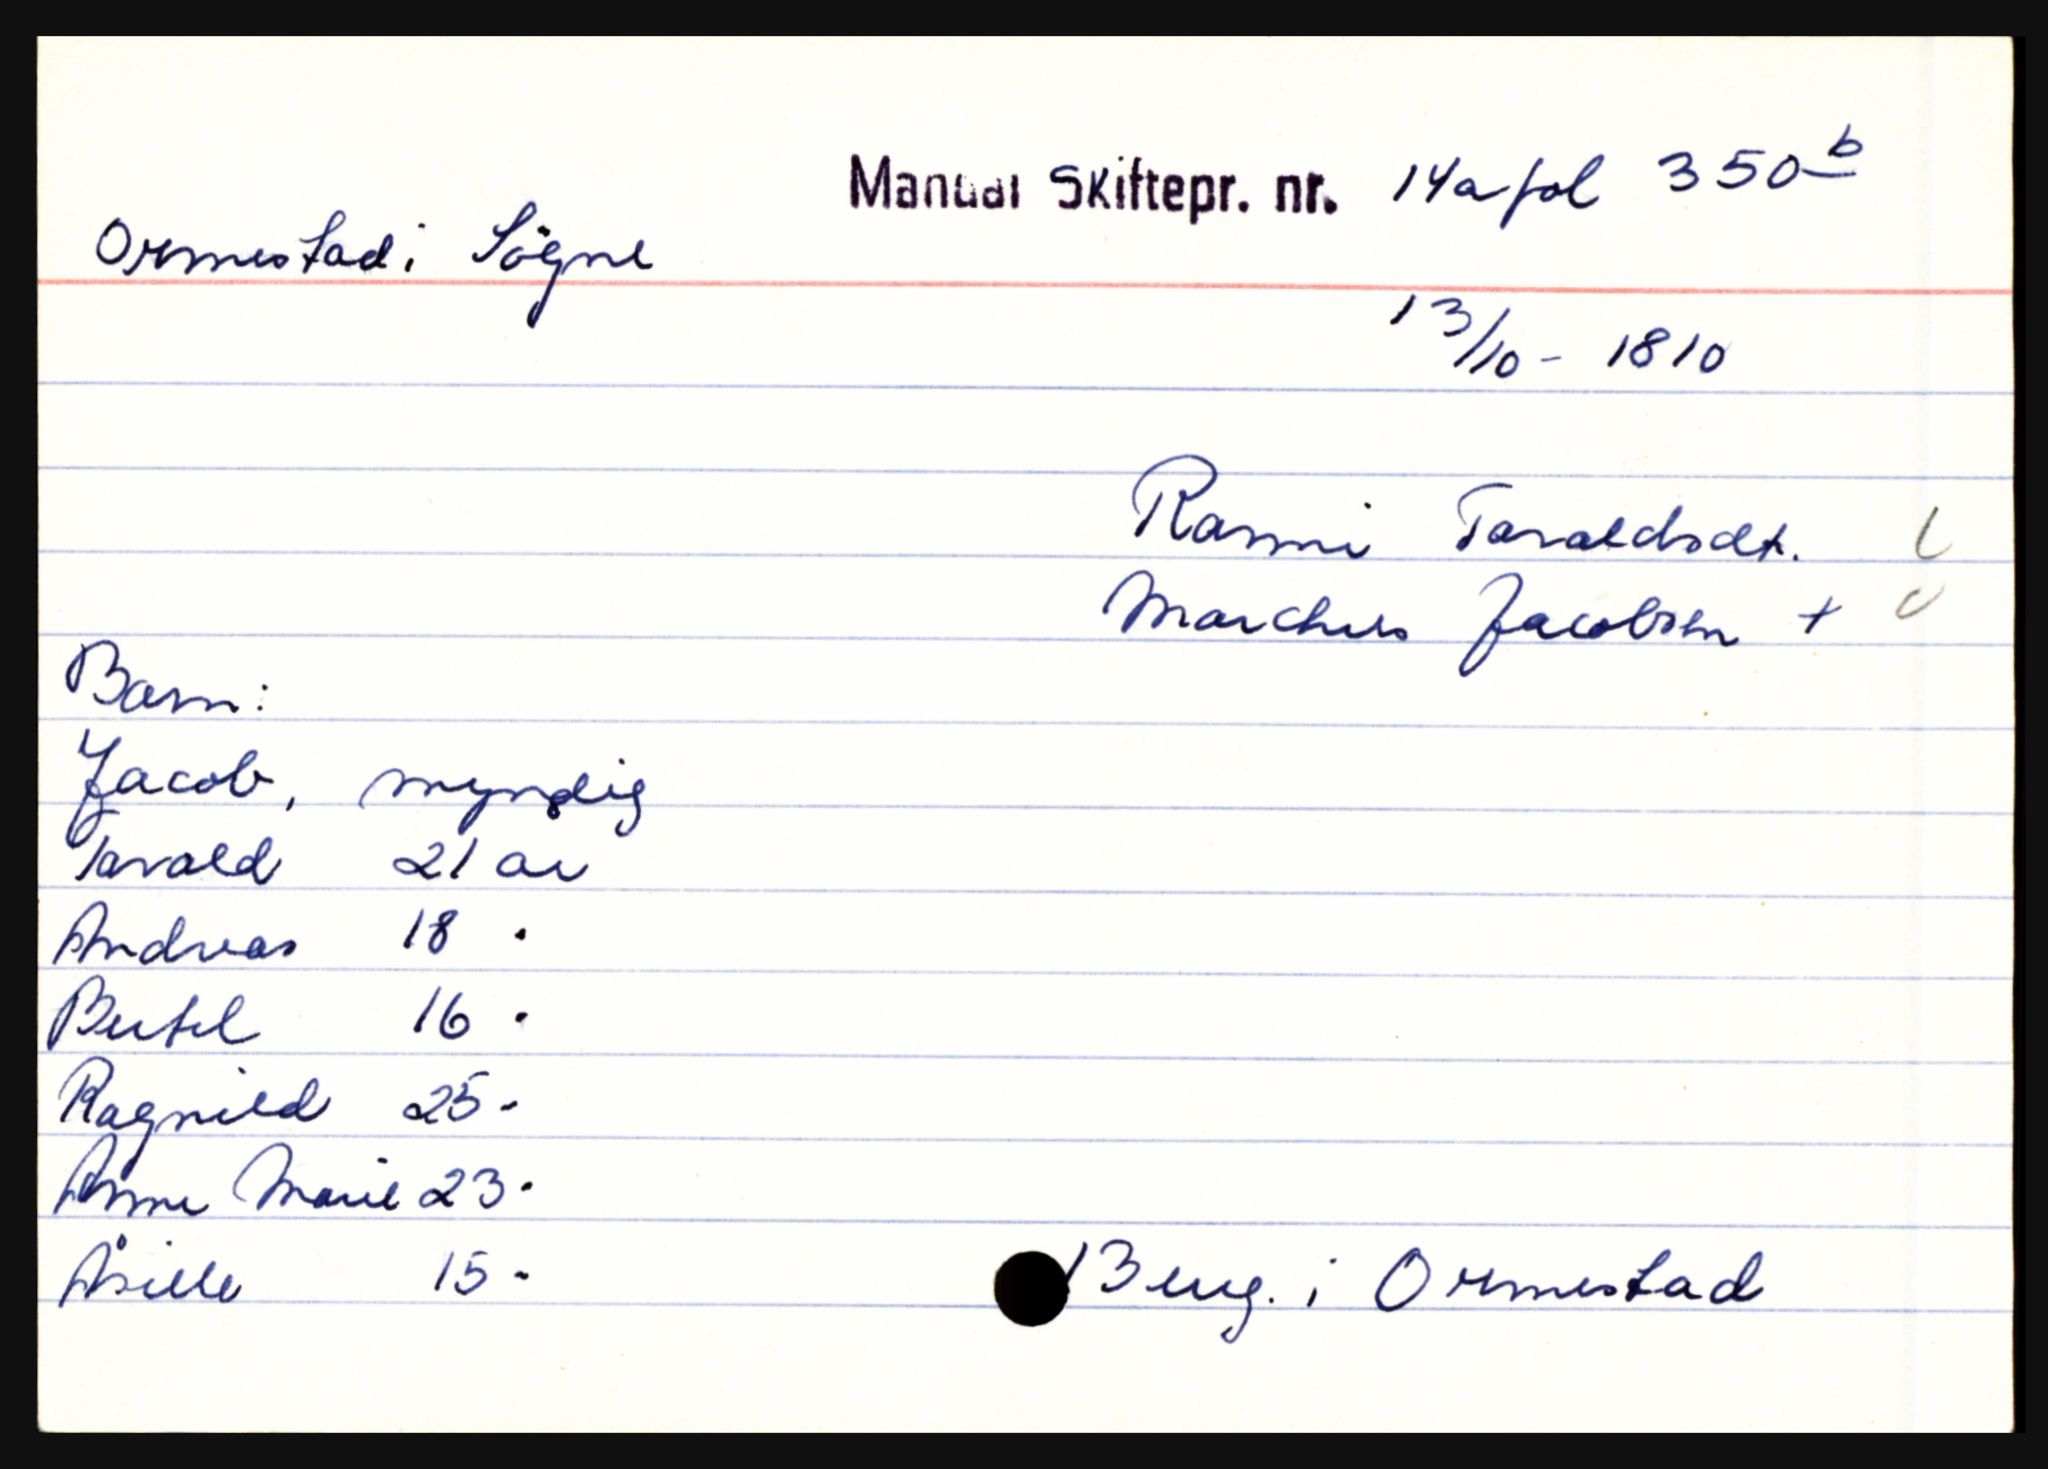 Manual Skiftepr. nr. 14a fol 350b
Ormestad i Søgne
13/10 - 1810
Ranni Taraldsdt.
Marchus Jacobsen +
Barn:
Jacob, myndig
Tarald 21 år
Andreas 18 .
Bertel 16 .
Ragnild 25 .
Anne Marie 23 .
Åsille 15 .
13 eng. i Ormestad